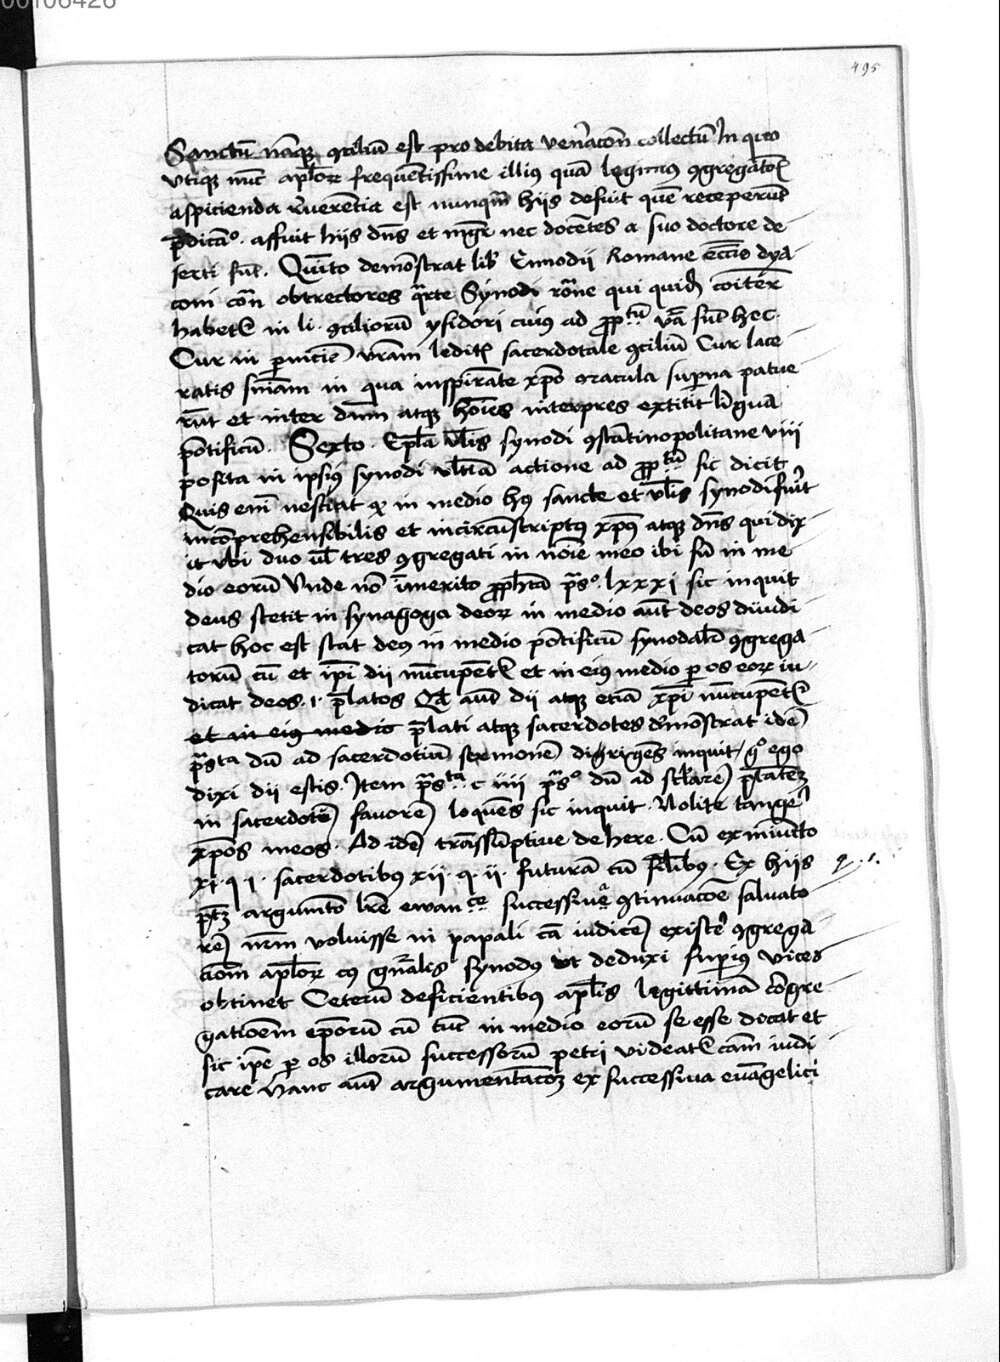 00106426
495
Sanctū nāqꝫ ꝯciliū est pro debita ven̄acōn collectū In quo
vtiqꝫ nūc aplōꝝ frequētissime illius quā legimus ꝯgregatōē
aspicienda rēuerētia est nunqm̄ hiis defuit quē receperūt
p̄dicāo. affuit hiis dn̄s et mgr̄ nec docētes a suo doctore de
serti sūt. Quīto demōstrat lib̓ Ennodii Romane eccīe dya
coni cōn obtrectores q̄rte Synodi rōne qui
habet̄ in li. ꝯciliorū ysidori cuiꝰ ad ꝓpotū v̄ā sūt hec.
Cur in ꝑniciē vr̄am leditꝭ sacerdotale ꝯciliū Cur lace
ratis sn̄iam in qua inspirāte xp̄o oracula suꝑna patue
rūt et inter dm̄ atqꝫ hōīes interpres extitit lingua
pōtificū. Sexto. Epl̄a vl̄is synodi ꝯstātinopolitane viii
posita in ipsiꝰ synodi vltīa actione ad ꝓpotū sic dicit
Quis eni nesciat ꝙ in medio hꝰ sancte et vl̄is synodi fuit
incōprehensibilis et incircūscriptꝰ xp̄ꝰ atqꝫ dn̄s qui dix
it vbi duo ul̄ tres ꝯgregati in nōīe meo ibi sū in me
dio eorū Vnde nō īmerito ꝓph̄ta p̄s. lxxxi sic inquit
deus stetit in synagoga deoꝝ in medio aūt deos diiudi
cat hoc est stat deꝰ in medio pōtificū synodal̄r ꝯgrega
torū cū et ip̄i dii nūcupēt̄ et in eiꝰ medio ꝑ os eoꝝ iu
dicat deos .i. p̄latos Qd̄ aūt dii atqꝫ etiā xp̄i nūcupēt̄
et in eiꝰ medio p̄lati atqꝫ sacerdotes dēmōstrat idē
p̄sta dū ad sacerdotiū sermonē dirigēs inquit / go ego
dixi dii estis. Item p̄sta c iiii p̄so dū ad
in sacerdotē favorē loquēs sic inquit Nolite tāgē
xp̄os meos. Ad idē trāssūptiue de here. Cū ex iniūcto
xi. q. i. sacerdotibus xii. q. ii. futurā cū
q. i.
Ex hiis
ptꝫ argumēto lr̄e ewance successiue ꝯtinuacōe saluato
rē nēm voluisse in papali cā iudicē existe ꝯgrega
ciōm aplōꝝ cꝰ gn̄alis synodꝰ vt deduxi suꝑiꝰ vices
obtinet Ceterū deficientibꝰ apl̄is legittimā cōgre
gatioēm ep̄orū cū tūc in medio eorū se esse doceat et
sic ip̄e ꝑ os illorū successorū petri videat̄ cām iudi
care Hanc aūt argumentacōꝫ ex successiua euāgelici